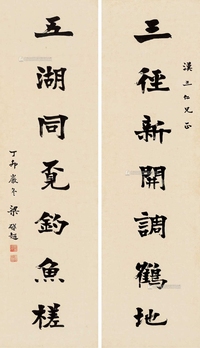 三徑新開調鶴地
漢三仁兄正
五湖同覓釣魚槎
丁卯歲冬 梁啟超